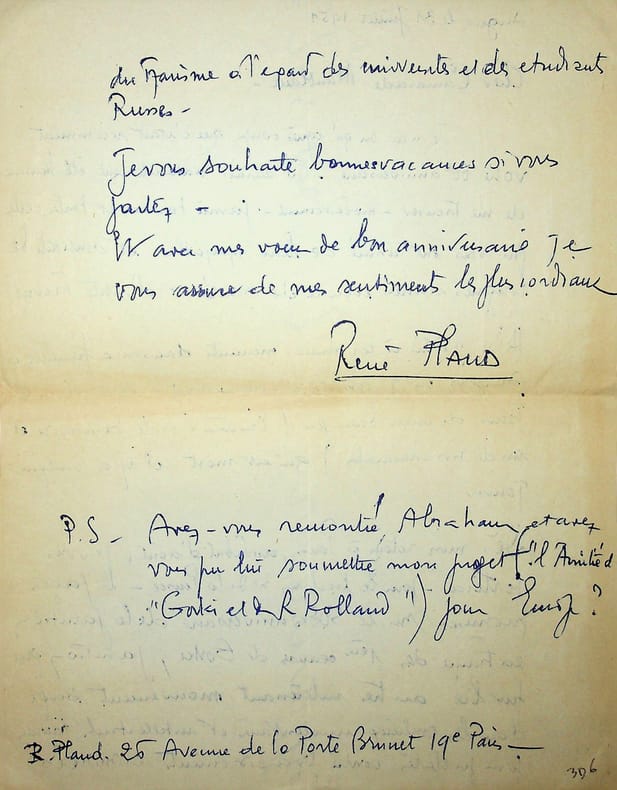 du Tzarisme à l'egard des universites et des etudiants
Russes -
Je vous souhaite bonnes vacances si vous
partez -
Et avec mes vœux de bon anniversaire je
vous assure de mes sentiments les plus cordiaux
René PLAUD
P.S - Avez-vous remontré Abraham et avez
vous pu lui soumettre mon projet ("l'Amitié d
"Gorki et de R Rolland") pour Europe ?
R. Plaud. 26 Avenue de la Porte Brunet 19e Paris -
306